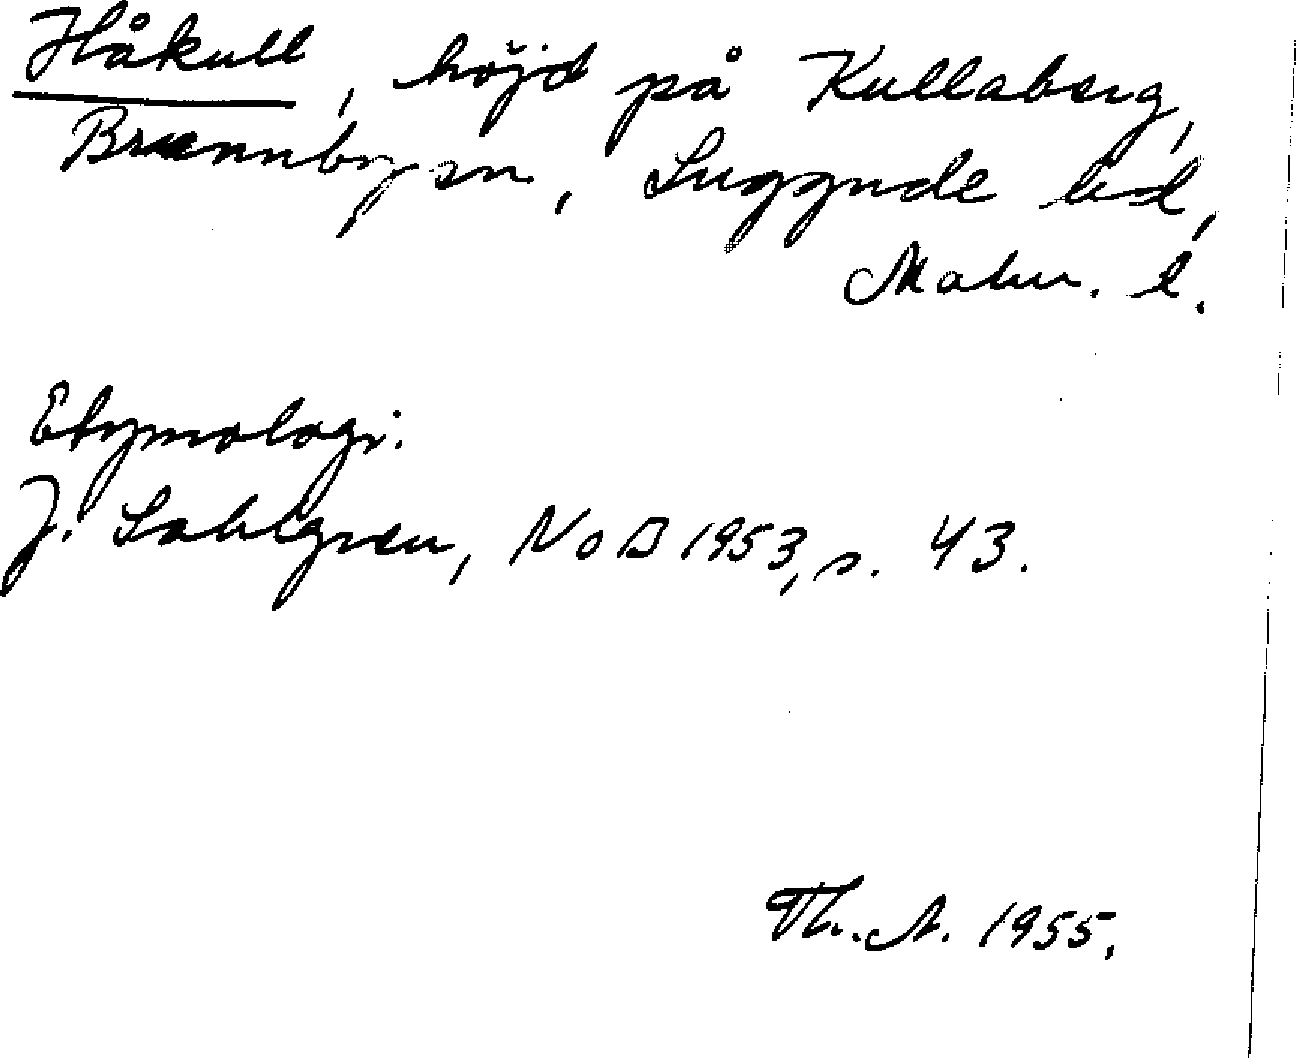 Håkull, höjd på Kullaberg,
Brunnbysn, Luggude hd,
Malm. l.
Etymologi.
J. Sahlgren, NoB 1953, s. 43.
Th. A. 1955.